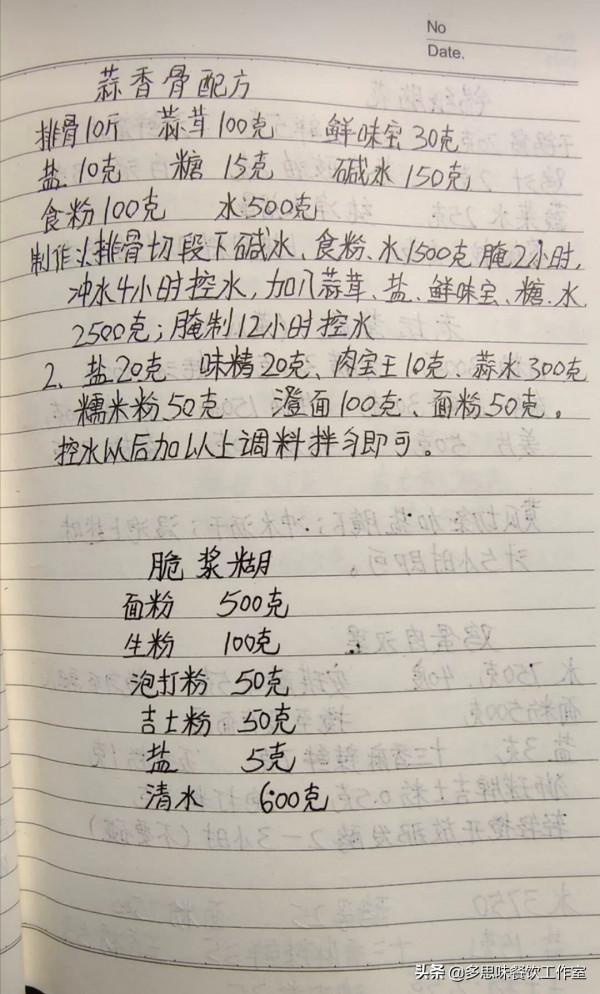 No
Date.
蒜香骨配方
排骨10斤 蒜茸100克 鲜味宝30克
盐10克 糖 15克 碱水150克
食粉100克 水:500克
制作:1、排骨切段下碱水、食粉、水1500克腌2小时,
冲水4小时控水,加入蒜茸、盐、鲜味宝、糖、水
2500克;腌制12小时控水
2、盐20克 味精20克、肉宝王10克、蒜水300克
糯米粉50克 澄面100克、面粉50克。
控水以后加以上调料拌匀即可。
脆浆糊
面粉 500克
生粉 100克
泡打粉 50克
吉士粉 50克
盐 5克
清水 600克
头条 @多思味餐饮工作室